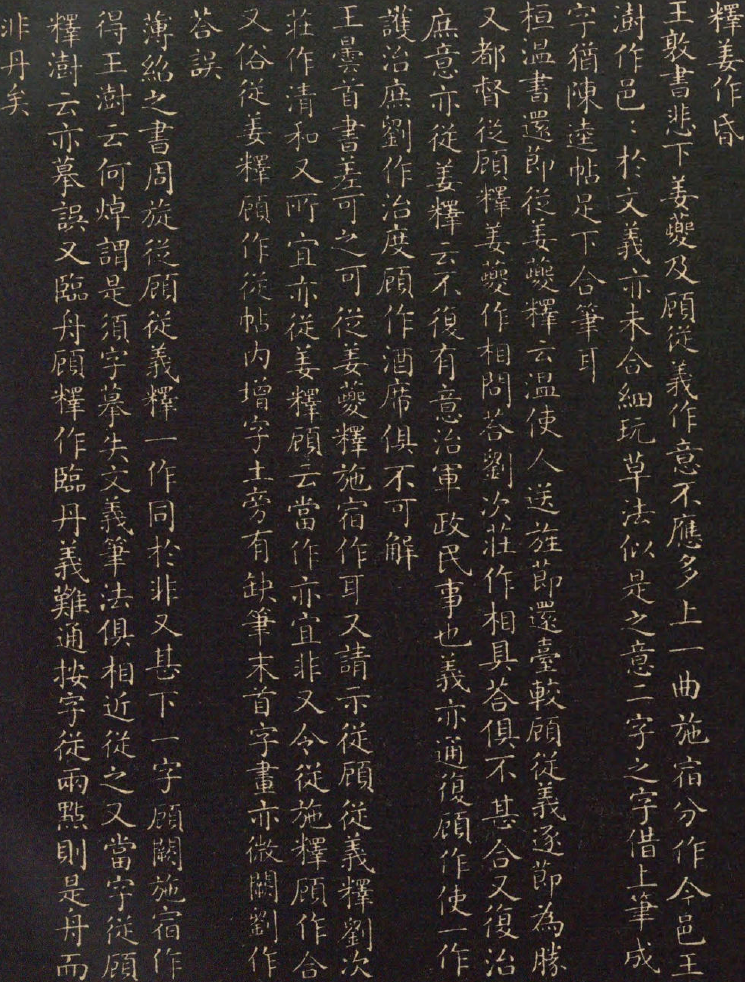 釋姜作昏
王敦書悲下姜夔及顧從義作意不應多上一曲施宿分作今邑王
澍作邑：於文義亦未合細玩草法似是之意二字之字借上筆成
字猶陳逵帖足下合筆耳
桓温書還節從姜夔釋云温使人送旌節還臺較顧從義逐節為勝
又都督從顧釋姜夔作相問荅劉次莊作相具荅俱不甚合又復治
庶意亦從姜釋云不復有意治軍政民事也義亦通復顧作使一作
護治庶劉作治度顧作酒席俱不可解
王曇首書差可之可從姜夔釋施宿作耳又請示從顧從義釋劉次
莊作清和又所宜亦從姜釋顧云當作亦宜非又令從施釋顧作合
又俗從姜釋顧作從帖內增字土旁有缺筆末首字畫亦微闕劉作
荅誤
薄紹之書周旋從顧從義釋一作同於非又甚下一字顧闕施宿作
得王澍云何焯謂是須字摹失文義筆法俱相近從之又當字從顧
釋澍云亦摹誤又臨舟顧釋作臨丹義難通按字從兩點則是舟而
非丹矣